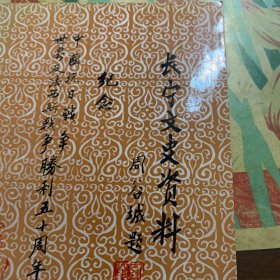 长宁文史资料
周谷城题
纪念
中國抗日战争
世界反法西斯戰争勝利五十周年